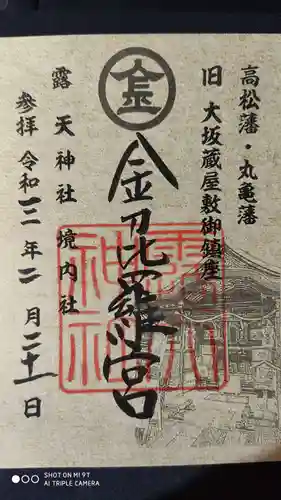 高松藩・丸亀藩
旧 大坂蔵屋敷御鎮座
金
金刀比羅宮
露天神社
露天神社境内社
参拝 令和三年二月二十一日
SHOT ON MI 9T
AI TRIPLE CAMERA